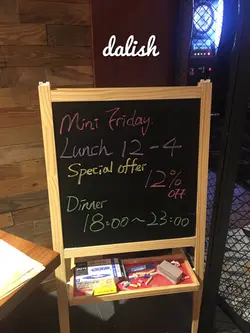 dalish
Mini Friday.
Lunch 12-4
Special offer
12% OFF
Dinner
18:00~23:00